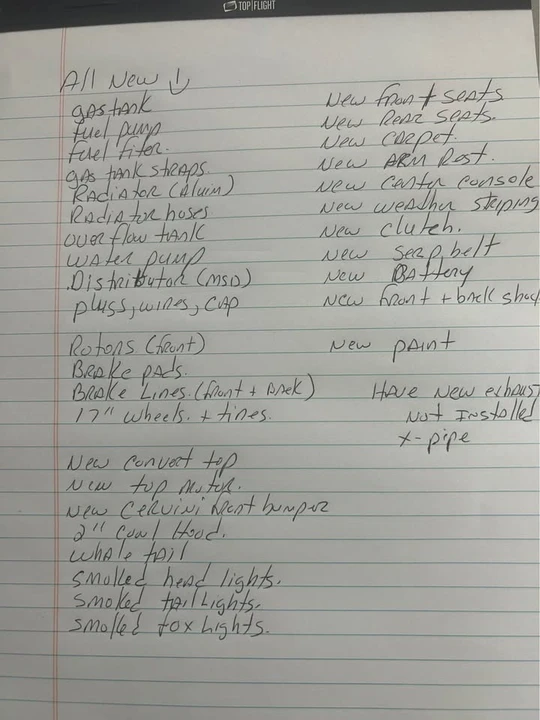 TOP FLIGHT
All New ↓
gas tank
fuel pump
fuel fiter.
gas tank straps.
Radiator (Aluim)
Radiator hoses
over flow tank
water pump
Distributor (MSD)
plugs, wires, CAP
Rotors (front)
BRAke pads.
BRAke Lines. (front + BACK)
17" wheels. + tires.
New convert top
New top motor.
New CERVini front bumper
2" Cowl Hood.
Whale tail
Smoked head lights.
Smoked tail Lights.
Smoked fox Lights.
New front seats
New Rear seats.
New carpet.
New ARM Rest.
New center console
New weather striping
New clutch.
New serp belt
New Battery
New front + back shoc
New paint
Have new exhaust
Not Installed
x-pipe